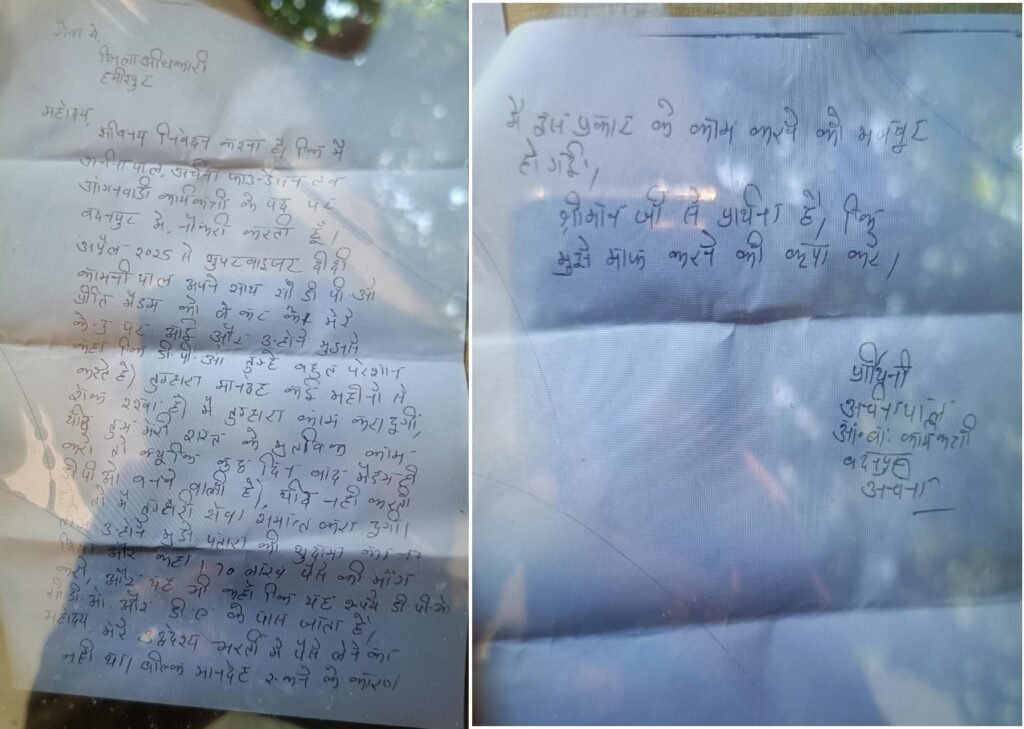 सेवा मे
जिलाधिकारी
हमीरपुर
महोदय,
सविनय निवेदन करना है, कि मै
अर्चना पाल,
आंगनवाडी कार्यकत्री के पद पर
वदनपुर मे, नौकरी करती हूँ।
अप्रैल २०२५ से सुपरवाइजर दीदी
कामनी पाल अपने साथ सी डी पी.ओ
प्रीति मैडम को ले कर मेरे
के.उ पर आई और उन्होने मुझसे
कहा कि डी.पी.ओ तुम्हे बहुत परेशान
करते है, तुम्हारा मानदेह कई महीनो से
रोक रखा है। मै तुम्हारा काम करा दुगी,
यदि तुम मेरी शरत के मुताविक काम-
करो तो क्यूकि कुछ दिन वाद मैडम ही
डी.पी.ओ वनने वाली है, यदि नही करती
तो मै तुम्हारी सेवा समाप्त करा दुगी।
उन्होने मुझे पतारा की सुदामा का
दिया और कहा। 70 लाख पैसे की माँग
करो, और यह भी कहा कि यह रुपये डी.पी.ओ
सी.डी.ओ. और डी.ए के पास जाता है,
महोदय, मेरे उद्देश्य भरती मे पैसे लेने का
नही था। वल्कि मानदेह रुकने के कारण
मै इस प्रकार के काम करने को मजबूर
हो गई।,
श्रीमान जी से प्रार्थना है, कि
मुझे माफ करने की कृपा करे,
प्रार्थिनी
अर्चना पाल
आं.वा. कार्यकत्री
वदनपुर
अर्चना